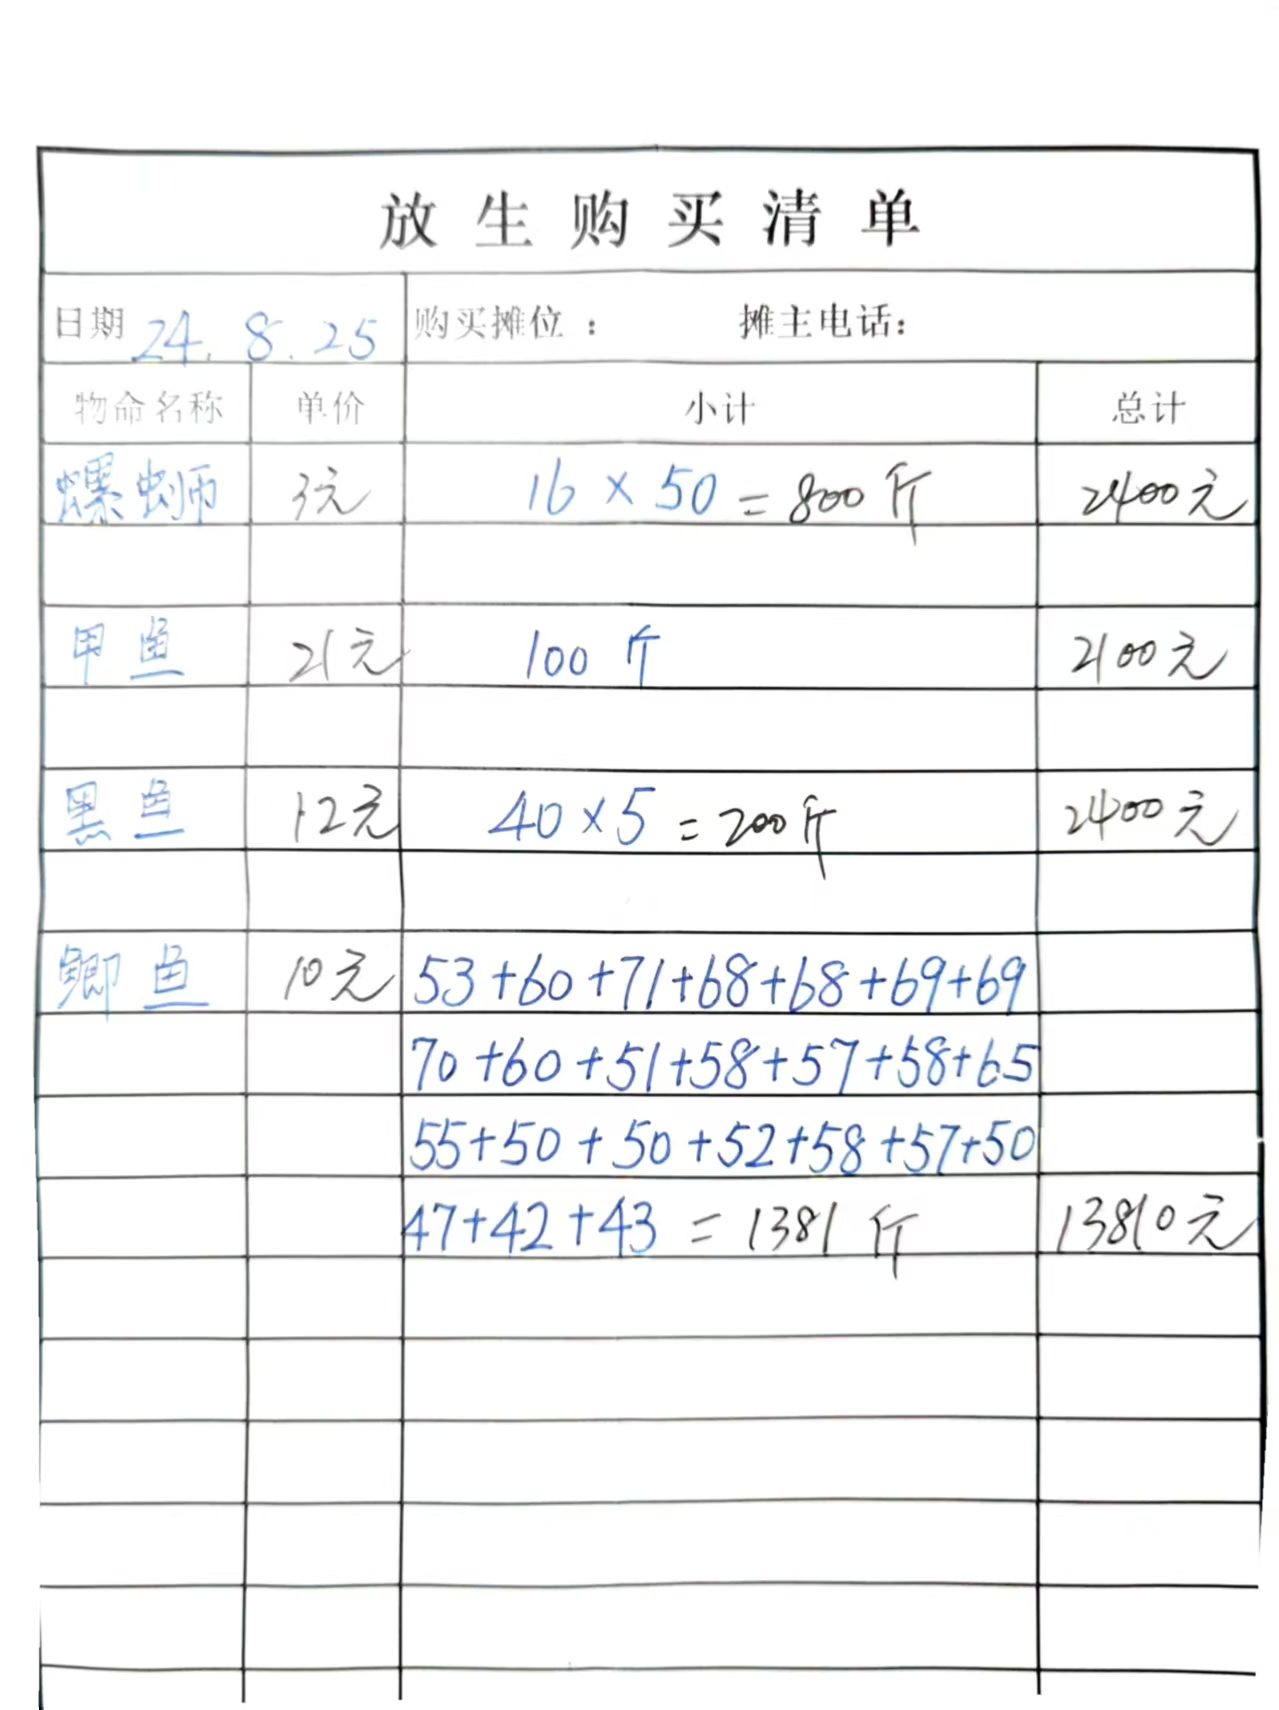 放生购买清单
日期 24.8.25 购买摊位： 摊主电话：
物命名称 单价 小计 总计
螺蛳 3元 16×50=800斤 2400元
甲鱼 21元 100斤 2100元
黑鱼 12元 40×5=200斤 2400元
鲫鱼 10元 53+60+71+68+68+69+69
70+60+51+58+57+58+65
55+50+50+52+58+57+50
47+42+43=1381斤 13810元